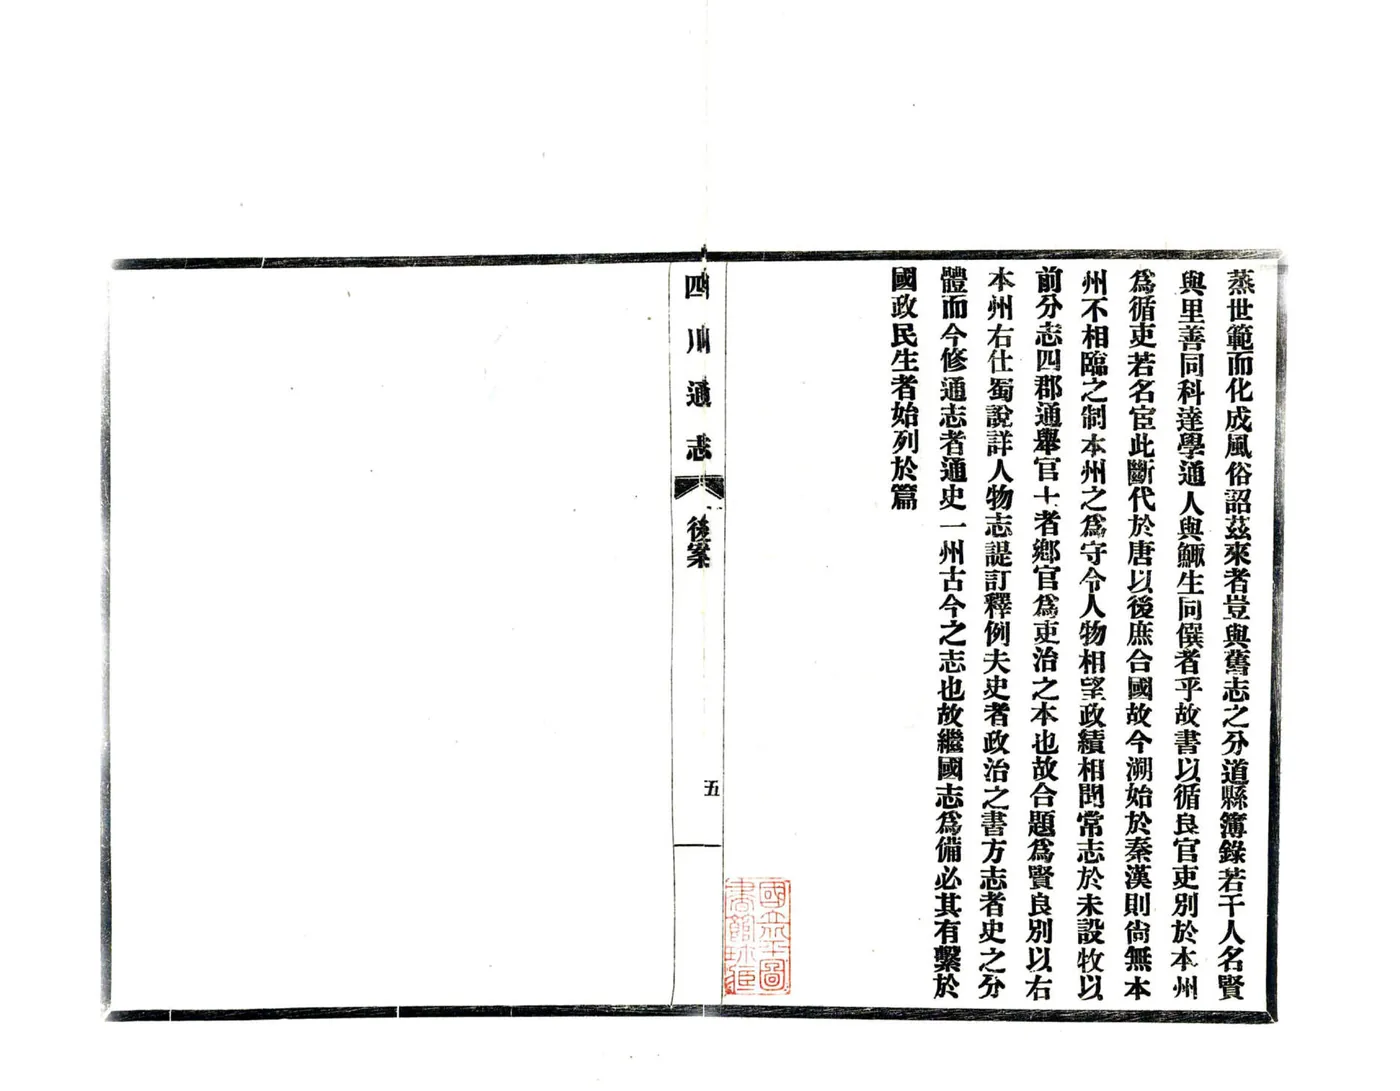 蒸世範而化成風俗詔茲來者豈與舊志之分道縣簿錄若干人名賢
與里善同科達學通人與鯫生同僎者乎故書以循良官吏別於本州
爲循吏若名宦此斷代於唐以後庶合國故今溯始於秦漢則尙無本
州不相臨之制本州之爲守令人物相望政績相聞常志於未設牧以
前分志四郡通舉官士者鄉官爲吏治之本也故合題爲賢良別以右
本州右仕蜀說詳人物志諟訂釋例夫史者政治之書方志者史之分
體而今修通志者通史一州古今之志也故繼國志爲備必其有繫於
國政民生者始列於篇
四川通志
後案
五
國立北平圖
書館珍藏